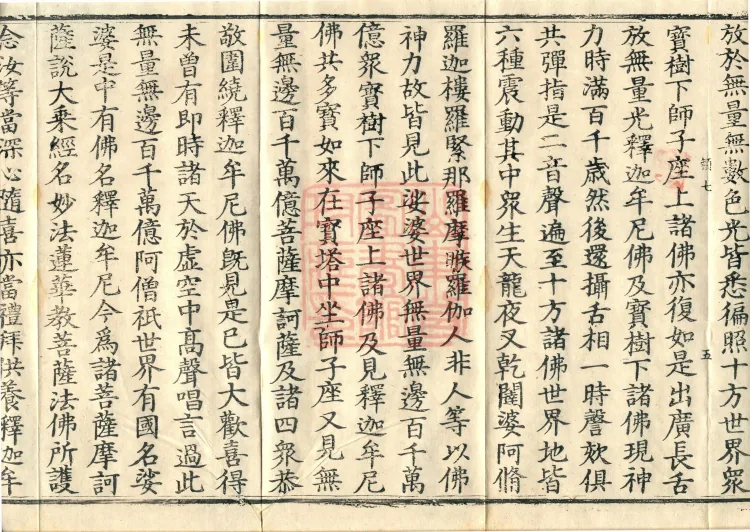 放於無量無數色光皆悉徧照十方世界眾
寶樹下師子座上諸佛亦復如是出廣長舌
放無量光釋迦牟尼佛及寶樹下諸佛現神
力時滿百千歲然後還攝舌相一時謦欬俱
共彈指是二音聲遍至十方諸佛世界地皆
六種震動其中眾生天龍夜叉乾闥婆阿脩
羅迦樓羅緊那羅摩睺羅伽人非人等以佛
神力故皆見此娑婆世界無量無邊百千萬
億眾寶樹下師子座上諸佛及見釋迦牟尼
佛共多寶如來在寶塔中坐師子座又見無
量無邊百千萬億菩薩摩訶薩及諸四眾恭
敬圍繞釋迦牟尼佛既見是已皆大歡喜得
未曾有即時諸天於虛空中高聲唱言過此
無量無邊百千萬億阿僧祇世界有國名娑
婆是中有佛名釋迦牟尼今為諸菩薩摩訶
薩說大乘經名妙法蓮華教菩薩法佛所護
念汝等當深心隨喜亦當禮拜供養釋迦牟